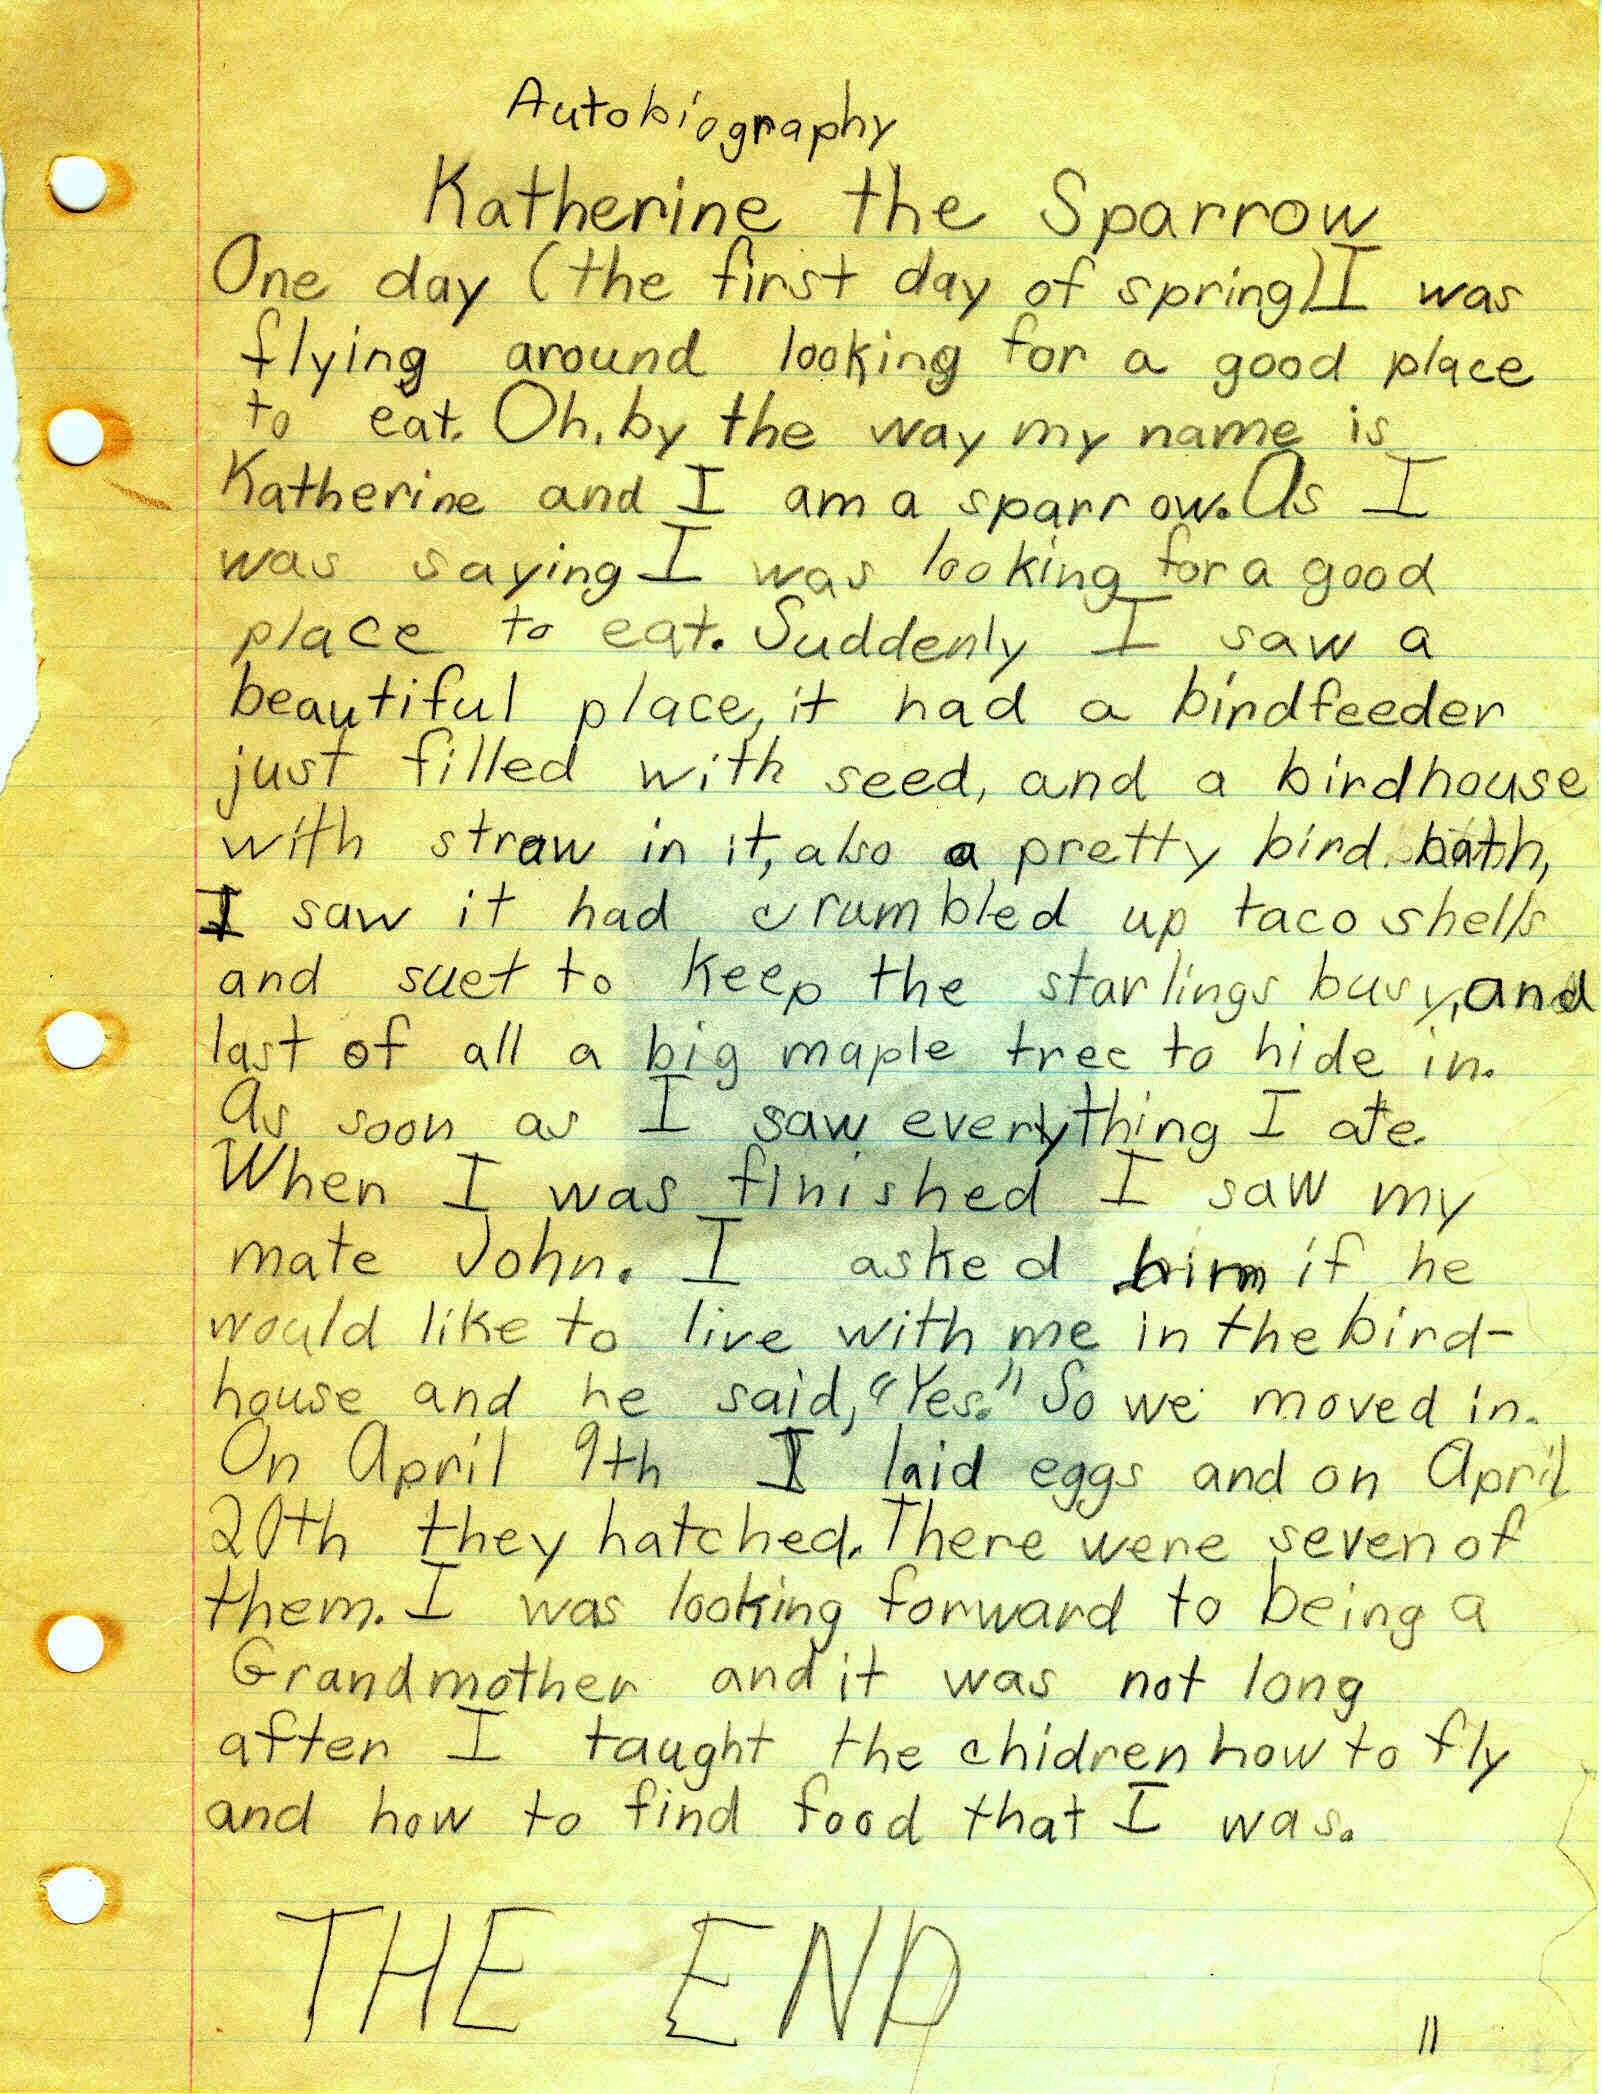 Autobiography
Katherine the Sparrow
One day (the first day of spring) I was
flying around looking for a good place
to eat. Oh, by the way my name is
Katherine and I am a sparrow. As I
was saying I was looking for a good
place to eat. Suddenly I saw a
beautiful place, it had a birdfeeder
just filled with seed, and a birdhouse
with straw in it, also a pretty bird bath,
I saw it had crumbled up taco shells
and suet to keep the starlings busy, and
last of all a big maple tree to hide in.
As soon as I saw everything I ate.
When I was finished I saw my
mate John. I asked him if he
would like to live with me in the bird-
house and he said, "Yes." So we moved in.
On April 9th I laid eggs and on April
20th they hatched. There were seven of
them. I was looking forward to being a
Grandmother and it was not long
after I taught the chidren how to fly
and how to find food that I was.
THE END
11